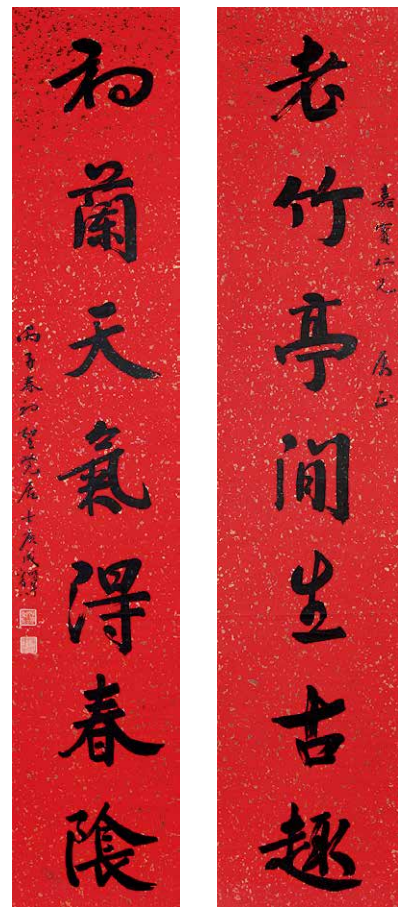 老竹亭間生古趣
嘉賓仁兄 属正
初蘭天氣得春隂
丙子春初 居士